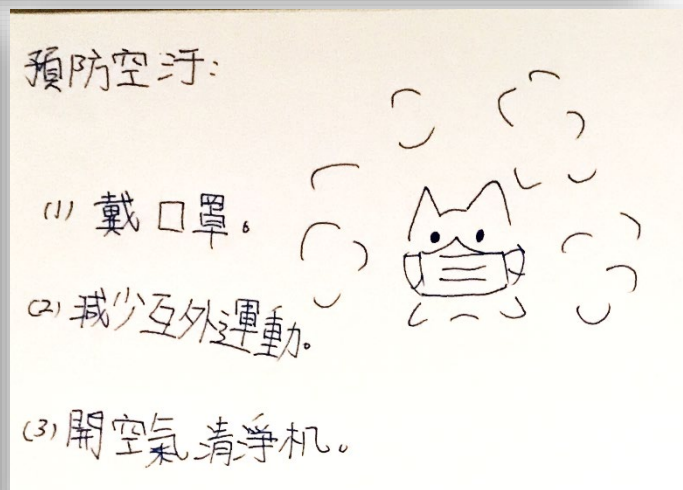 預防空汙:
(1) 戴口罩。
(2) 減少互外運動。
(3) 開空氣清淨机。